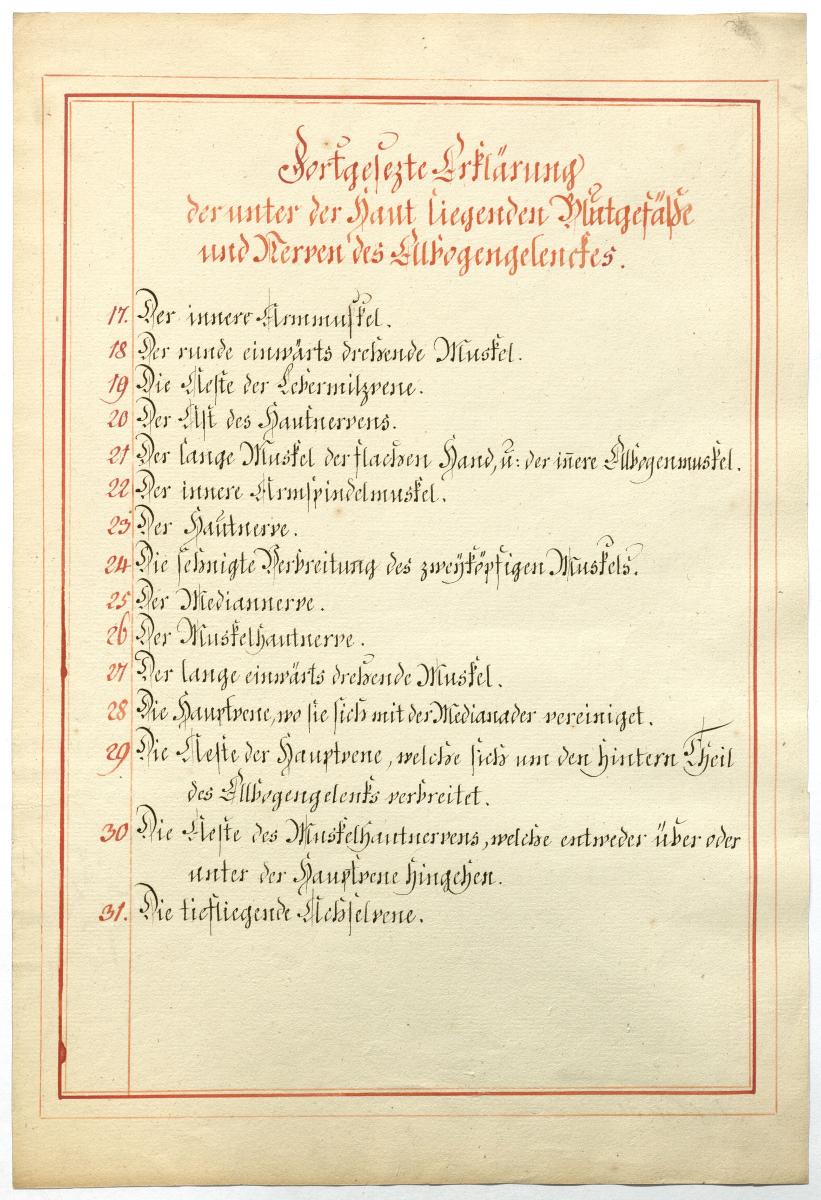 Fortgesezte Erklärung
der unter der Haut liegenden Blutgefäße
und Nerven des Ellbogengelenckes.
17. Der innere Armmuskel.
18 Der runde einwärts drehende Muskel.
19 Die Aeste der Lebermilzvene.
20 Der Ast des Hautnervens.
21 Der lange Muskel der flachen Hand, u: der iñere Ellbogenmuskel.
22 Der innere Armspindelmuskel.
23 Der Hautnerve.
24 Die sehnigte Verbreitung des zweyköpfigen Muskels.
25 Der Mediannerve.
26 Der Muskelhautnerve.
27 Der lange einwärts drehende Muskel.
28 Die Hauptvene, wo sie sich mit der Medianader vereiniget.
29 Die Aeste der Hauptvene, welche sich um den hintern Theil
des Ellbogengelenks verbreitet.
30 Die Aeste des Muskelhautnervens, welche entweder über oder
unter der Hauptvene hingehen.
31. Die tiefliegende Achselvene.